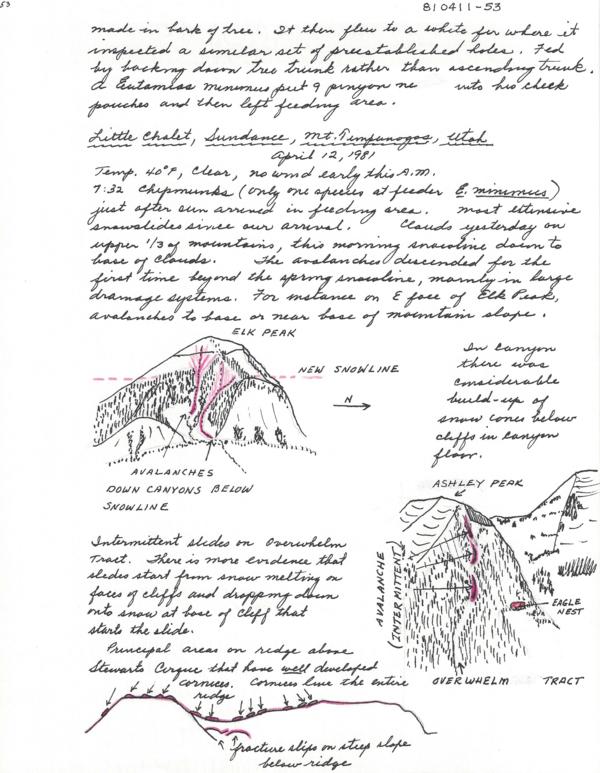 53
810411-53
made in bark of tree. It then flew to a white fir where it
inspected a similar set of preestablished holes. Fed
by backing down tree trunk rather than ascending trunk.
A Eutamias minimus put 9 pinyon ne into his cheek
pouches and then left feeding area.
Little Chalet, Sundance, Mt. Timpanogos, Utah
April 12, 1981
Temp. 40°F, Clear, no wind early this A.M.
7:32 Chipmunks (only one species at feeder E. minimus)
just after sun arrived in feeding area. most extensive
snowslides since our arrival. Clouds yesterday on
upper 1/3 of mountains, this morning snowline down to
base of clouds. The avalanches descended for the
first time beyond the spring snowline, mainly in large
drainage systems. For instance on E face of Elk Peak,
avalanches to base or near base of mountain slope.
ELK PEAK
NEW SNOWLINE
N
AVALANCHES
DOWN CANYONS BELOW
SNOWLINE
In Canyon
there was
considerable
build-up of
snow cones below
cliffs in canyon
floor.
ASHLEY PEAK
AVALANCHE
(INTERMITTENT)
EAGLE
NEST
OVERWHELM TRACT
Intermittent slides on Overwhelm
Tract. There is more evidence that
slides start from snow melting on
faces of cliffs and dropping down
onto snow at base of cliff that
starts the slide.
Principal areas on ridge above
Stewarts Cirque that have well developed
cornices. Cornices line the entire
ridge
fracture slips on steep slope
below ridge